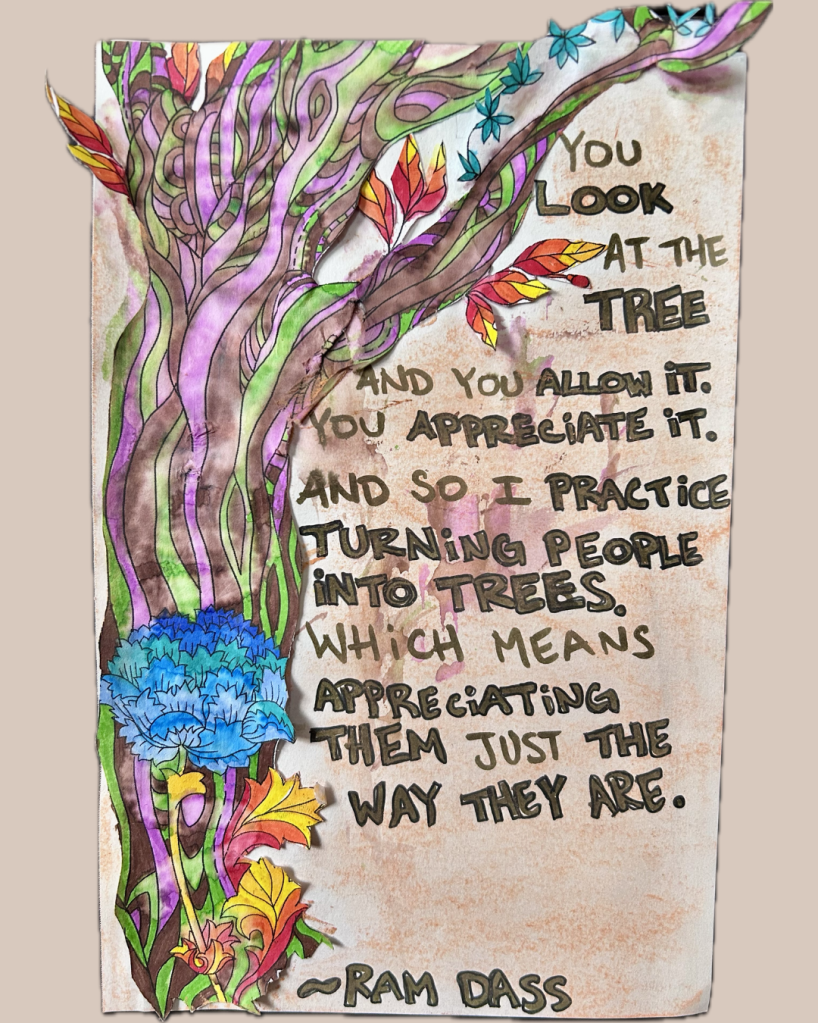 YOU
LOOK
AT THE
TREE
AND YOU ALLOW iT.
YOU APPRECiATE iT.
AND SO I PRACTiCE
TURNiNG PEOPLE
iNTO TREES.
WHiCH MEANS
APPRECiATiNG
THEM JUST THE
WAY THEY ARE.
~RAM DASS